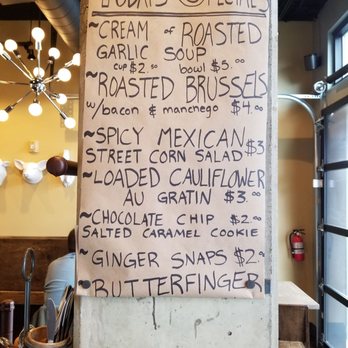 TODAY'S SPECIALS
~CREAM of ROASTED
GARLIC SOUP
cup $2.00 bowl $5.00
~ROASTED BRUSSELS
w/bacon & manchego $4.00
~SPICY MEXICAN
STREET CORN SALAD $3
~LOADED CAULIFLOWER
AU GRATIN $3.00
~CHOCOLATE CHIP $2.00
SALTED CARAMEL COOKIE
~GINGER SNAPS $2.00
~BUTTERFINGER